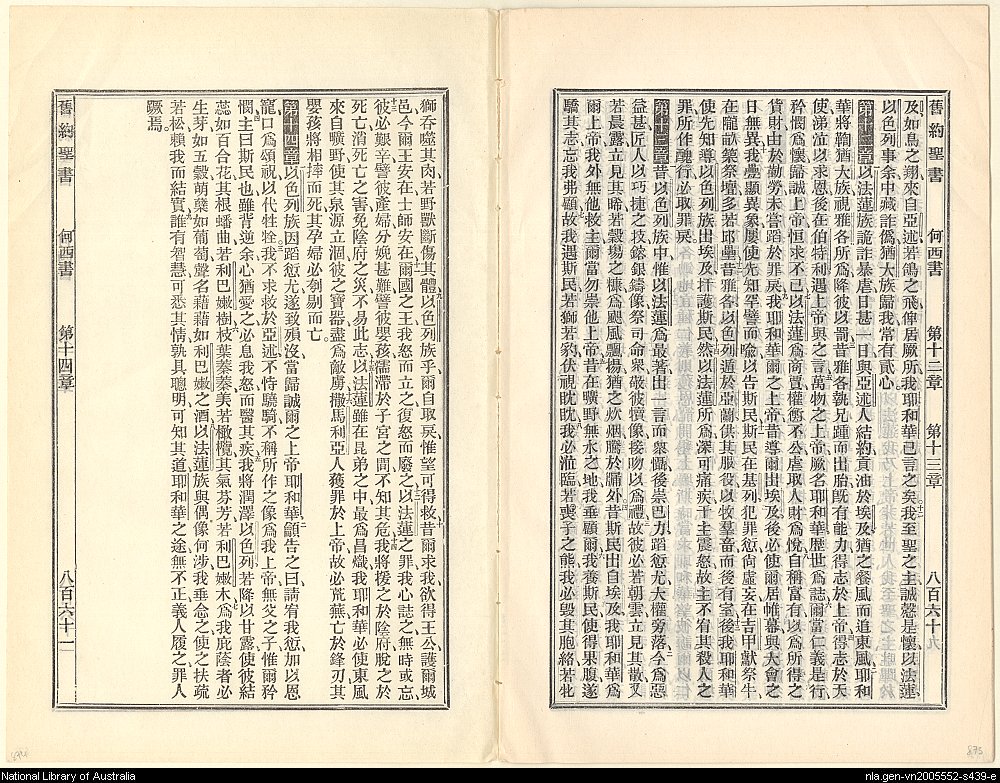 舊約聖書 何西書 第十二章 第十三章 八百六十
及如鳥之翔來自亞述若鴿之飛俾居厥所我耶和華已言之矣我至聖之主誠慤是懷以法蓮
以色列事余中藏詐僞猶大族歸我常有貳心
第十二章以法蓮族詭詐暴虐日甚一日與亞述人結約貢油於埃及猶之餐風而追東風耶和
華將鞫猶大族視雅各所爲降彼以罰昔雅各執兄踵而出胎旣有能力得志於上帝得志於天
使涕泣以求恩後在伯特利遇上帝與之言萬物之上帝厥名耶和華歷世爲誌爾當仁義是行
矜憫爲懷歸誠上帝恒求不已以法蓮爲商賈權衡不公虐取人財爲悅自稱富有以爲所得之
貨財由於勤勞未嘗蹈於罪戾我耶和華爾之上帝昔導爾出埃及後必使爾居帷幕與大會之
日無異我疊顯異象屢使先知罕譬而喩以告斯民斯民在基列犯罪愆尙虛妄在吉甲獻祭牛
在隴畝築祭壇多若邱壘昔雅各以色列遁於亞蘭供其服役以牧羣畜而後有室後我耶和華
使先知導以色列族出埃及扞護斯民然以法蓮所爲深可痛疾干主震怒故主不宥其殺人之
罪所作醜行必取罪戾
第十三章昔以色列族中惟以法蓮爲最著出一言而衆懾後崇巴力蹈愆尤大權旁落今爲惡
益甚匠人以巧捷之技鎔銀鑄像祭司命衆敬彼犢像接吻以爲禮故彼必若朝雲立見其散又
若晨露立見其晞若穀場之糠爲颶風飄揚猶之炊烟騰於牖外昔斯民出自埃及我耶和華爲
爾上帝我外無他救主爾當勿崇他上帝昔在曠野無水之地我垂顧爾我養斯民使得果腹遂
驕其志忘我弗顧故我遇斯民若獅若豹伏視眈眈我必涖臨若喪子之熊我必毀其胞絡若牝
獅吞噬其肉若野獸斷傷其體以色列族乎爾自取戾惟望可得救昔爾求我欲得王公護爾城
邑今爾王安在士師安在爾國之王我怒而立之復怒而廢之以法蓮之罪我心誌之無時或忘
彼必艱辛譬彼產婦分娩甚難譬彼嬰孩濡滯於子宮之間不知其危我將援之於陰府脫之於
死亡消死亡之害免陰府之災不易此志以法蓮雖在昆弟之中最爲昌熾我耶和華必使東風
來自曠野使其泉源立涸彼之寶器盡爲敵虜撒馬利亞人獲罪於上帝故必荒蕪亡於鋒刃其
嬰孩將相摔而死其孕婦必刳剔而亡。
第十四章以色列族因蹈愆尤遂致殞沒當歸誠爾之上帝耶和華籲告之曰請宥我愆加以恩
寵口爲頌祝以代牲牷我不求救於亞述不恃驍騎不稱所作之像爲我上帝無父之子惟爾矜
憫主曰斯民也雖背逆余心猶愛之必息我怒而醫其疾我將潤澤以色列若降以甘露使彼結
蕊如百合花其根蟠曲若利巴嫩樹枝葉蓁蓁美若橄欖其氣芬芳若利巴嫩木爲我庇蔭者必
生芽如五穀萌櫱如葡萄聲名藉藉如利巴嫩之酒以法蓮族與偶像何涉我垂念之使之扶疏
若松賴我而結實誰有智慧可悉其情孰具聰明可知其道耶和華之途無不正義人履之罪人
蹶焉。
舊約聖書 何西書 第十四章 八百六十一
National Library of Australia
nla.gen-vn2005552-s439-e
875